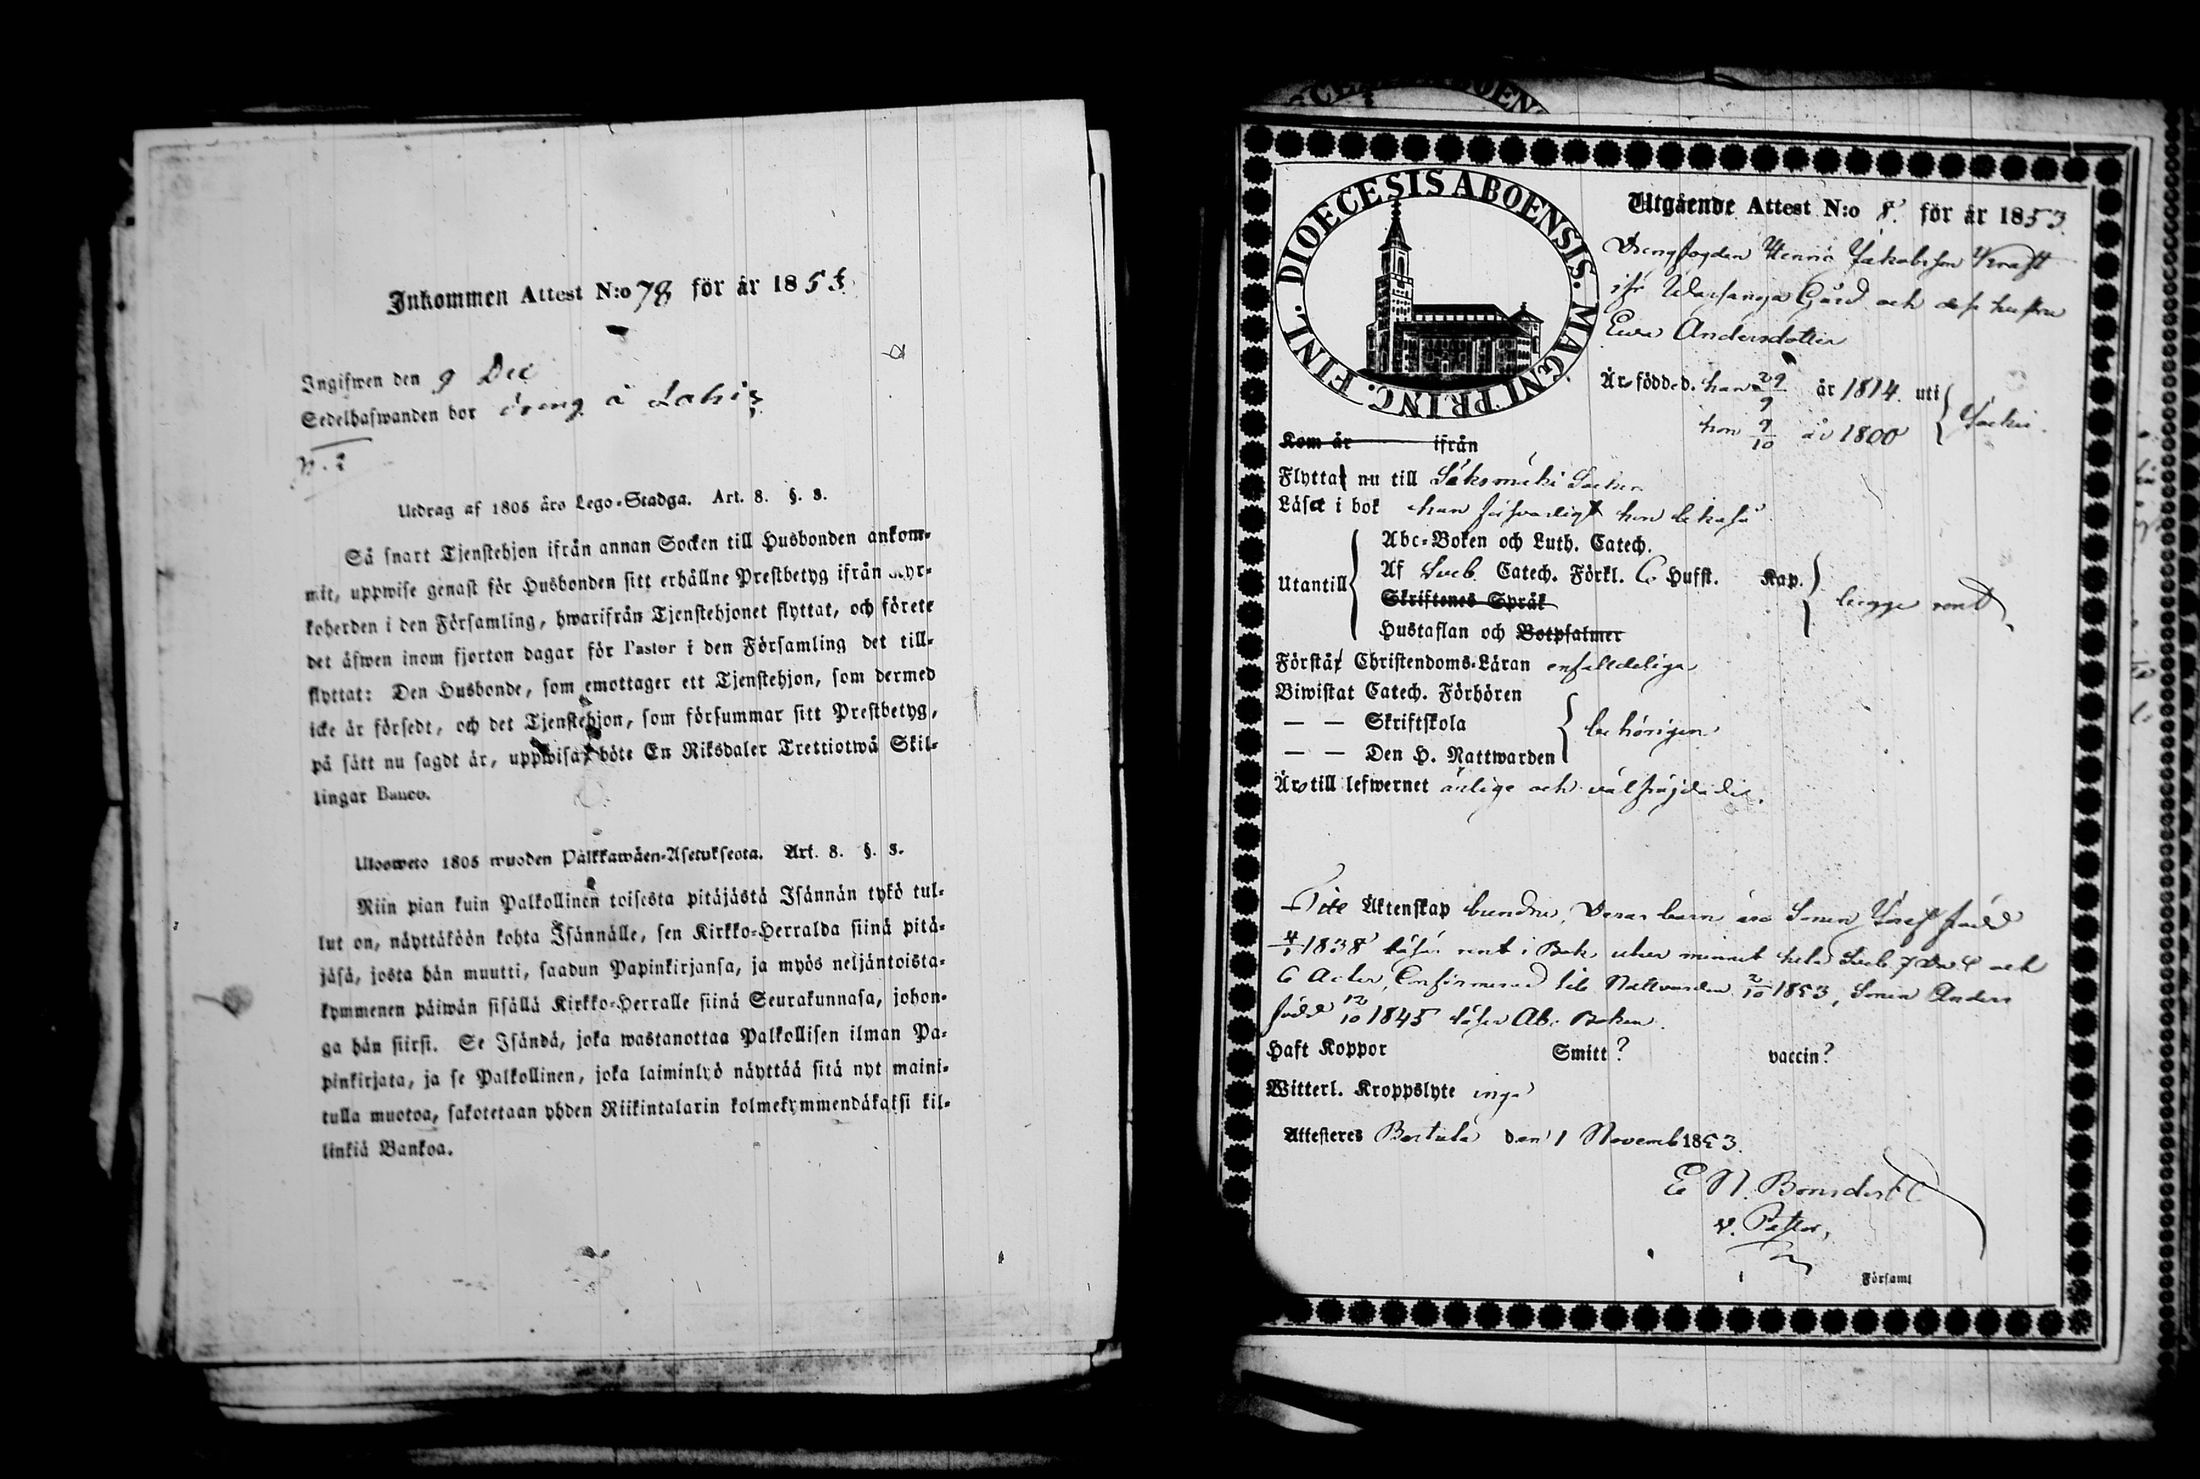 Inkommen Attest N:o 78 för år 1853
Ingifwen den 9 Dec
Sedelhafwanden bor dräng å Lahis
N. 2
Utdrag af 1805 års Lego-Stadga. Art. 8. §. 3.
Så snart Tjenstehjon ifrån annan Socken till Husbonden ankom-
mit, uppwise genast för Husbonden sitt erhållne Prestbetyg ifrån Kyr-
koherden i den Församling, hwarifrån Tjenstehjonet flyttat, och förete
det äfwen inom fjorton dagar för Pastor i den Församling det till-
flyttat: Den Husbonde, som emottager ett Tjenstehjon, som dermed
icke är försedt, och det Tjenstehjon, som försummar sitt Prestbetyg,
på sätt nu sagdt är, uppwisa, böte En Riksdaler Trettiotwå Skil-
lingar Banco.
Ulosweto 1805 wuoden Palkkawäen-Asetuksesta. Art. 8. §. 3.
Niin pian kuin Palkollinen toisesta pitäjästä Isännän tykö tul-
lut on, näyttäköön kohta Isännälle, sen Kirkko-Herralda siinä pitä-
jäsä, josta hän muutti, saadun Papinkirjansa, ja myös neljäntoista-
kymmenen päiwän sisällä Kirkko-Herralle siinä Seurakunnasa, johon-
ga hän siirsi. Se Isändä, joka wastanottaa Palkollisen ilman Pa-
pinkirjata, ja se Palkollinen, joka laiminlyö näyttää sitä nyt maini-
tulla muotoa, sakotetaan yhden Riikintalarin kolmekymmendäkaksi kil-
linkiä Bankoa.
DIOECESIS ABOENSIS. MAGNI PRINC. FINL.
Utgående Attest N:o 8. för år 1853.
Drengfogden Henric Jakobsson Kraft
ifr Warsanga Gård och dess hustru
Ewa Andersdotter
Äro födde d. han 29/9 år 1814. uti
hon 9/10 år 1800
Kom år ifrån
Flytta nu till Sääksmäki Socken
Läsa i bok han försvarligt hon likaså
Abc-Boken och Luth. Catech.
Utantill Af Sveb. Catech. Förkl. 6 Hufst. Kap. begge rent
Skriftenes Språk
Hustaflan och Botpsalmer
Förstå Christendoms-Läran enfaldeliga
Biwistat Catech. Förhören
— — Skriftskola behörigen
— — Den H. Nattwarden
Äro till lefwernet ärlige och välfrejdade.
Till Äktenskap bundne, Deras barn äro Sonen Josef född
1838 läser rent i Bok utur minnet hela Sveb. och
6 Confirmerad till Nattvarden 2/10 1853, Sonen Anders
född 12/10 1845 läser Abc Boken.
Haft Koppor Smitt? vaccin?
Witterl. Kroppslyte inga
Attesteres Bertula den 1 Novemb 1853.
E N. Bonsdorff
v. Pastor,
i Församl